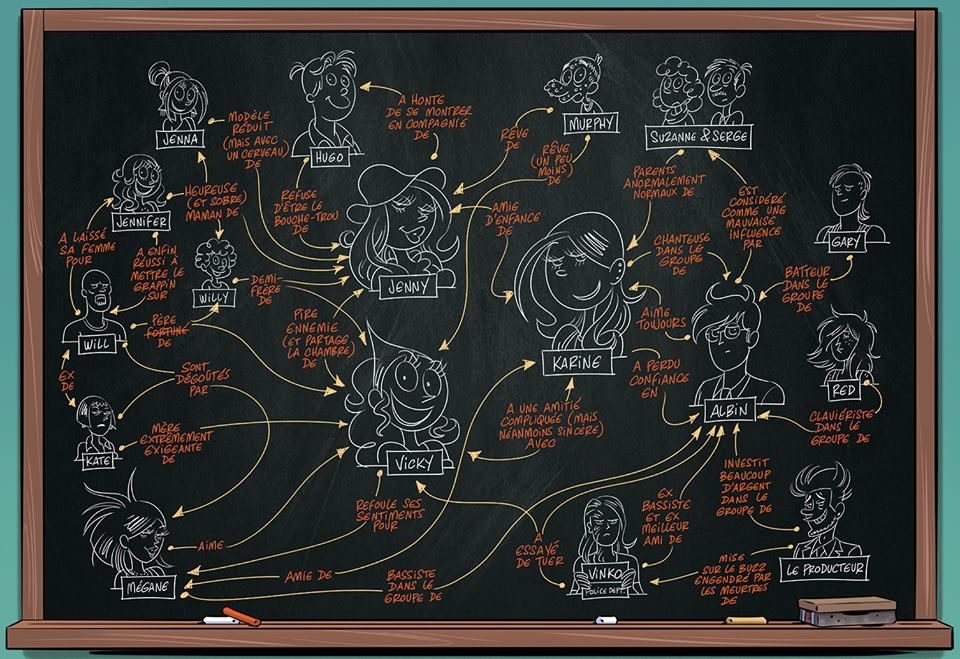 JENNA
MODÈLE
RÉDUIT
(MAIS AVEC
UN CERVEAU)
DE
HUGO
A HONTE
DE SE MONTRER
EN COMPAGNIE
DE
MURPHY
SUZANNE & SERGE
RÊVE
DE
RÊVE
(UN PEU
MOINS)
DE
PARENTS
ANORMALEMENT
NORMAUX DE
EST
CONSIDÉRÉ
COMME UNE
MAUVAISE
INFLUENCE
PAR
GARY
JENNIFER
HEUREUSE
(ET SOBRE)
MAMAN DE
REFUSE
D'ÊTRE LE
BOUCHE-TROU
DE
AMIE
D'ENFANCE
DE
CHANTEUSE
DANS LE
GROUPE
DE
BATTEUR
DANS LE
GROUPE
DE
A LAISSÉ
SA FEMME
POUR
A ENFIN
RÉUSSI À
METTRE LE
GRAPPIN
SUR
WILLY
DEMI-
FRÈRE
DE
JENNY
WILL
PÈRE
FORTUNE
DE
PIRE
ENNEMIE
(ET PARTAGE
LA CHAMBRE)
DE
AIME
TOUJOURS
KARINE
A PERDU
CONFIANCE
EN
ALBIN
RED
EX
DE
SONT
DÉGOÛTÉS
PAR
KATE
MÈRE
EXTRÊMEMENT
EXIGEANTE
DE
VICKY
A UNE AMITIÉ
COMPLIQUÉE (MAIS
NÉANMOINS SINCÈRE)
AVEC
CLAVIÉRISTE
DANS LE
GROUPE DE
REFOULE SES
SENTIMENTS
POUR
INVESTIT
BEAUCOUP
D'ARGENT
DANS LE
GROUPE DE
EX
BASSISTE
ET EX
MEILLEUR
AMI DE
AIME
A
ESSAYÉ
DE TUER
VINKO
POLICE DEPT.
LE PRODUCTEUR
MÉGANE
AMIE DE
BASSISTE
DANS LE
GROUPE DE
MISE
SUR LE BUZZ
ENGENDRÉ PAR
LES MEURTRES
DE